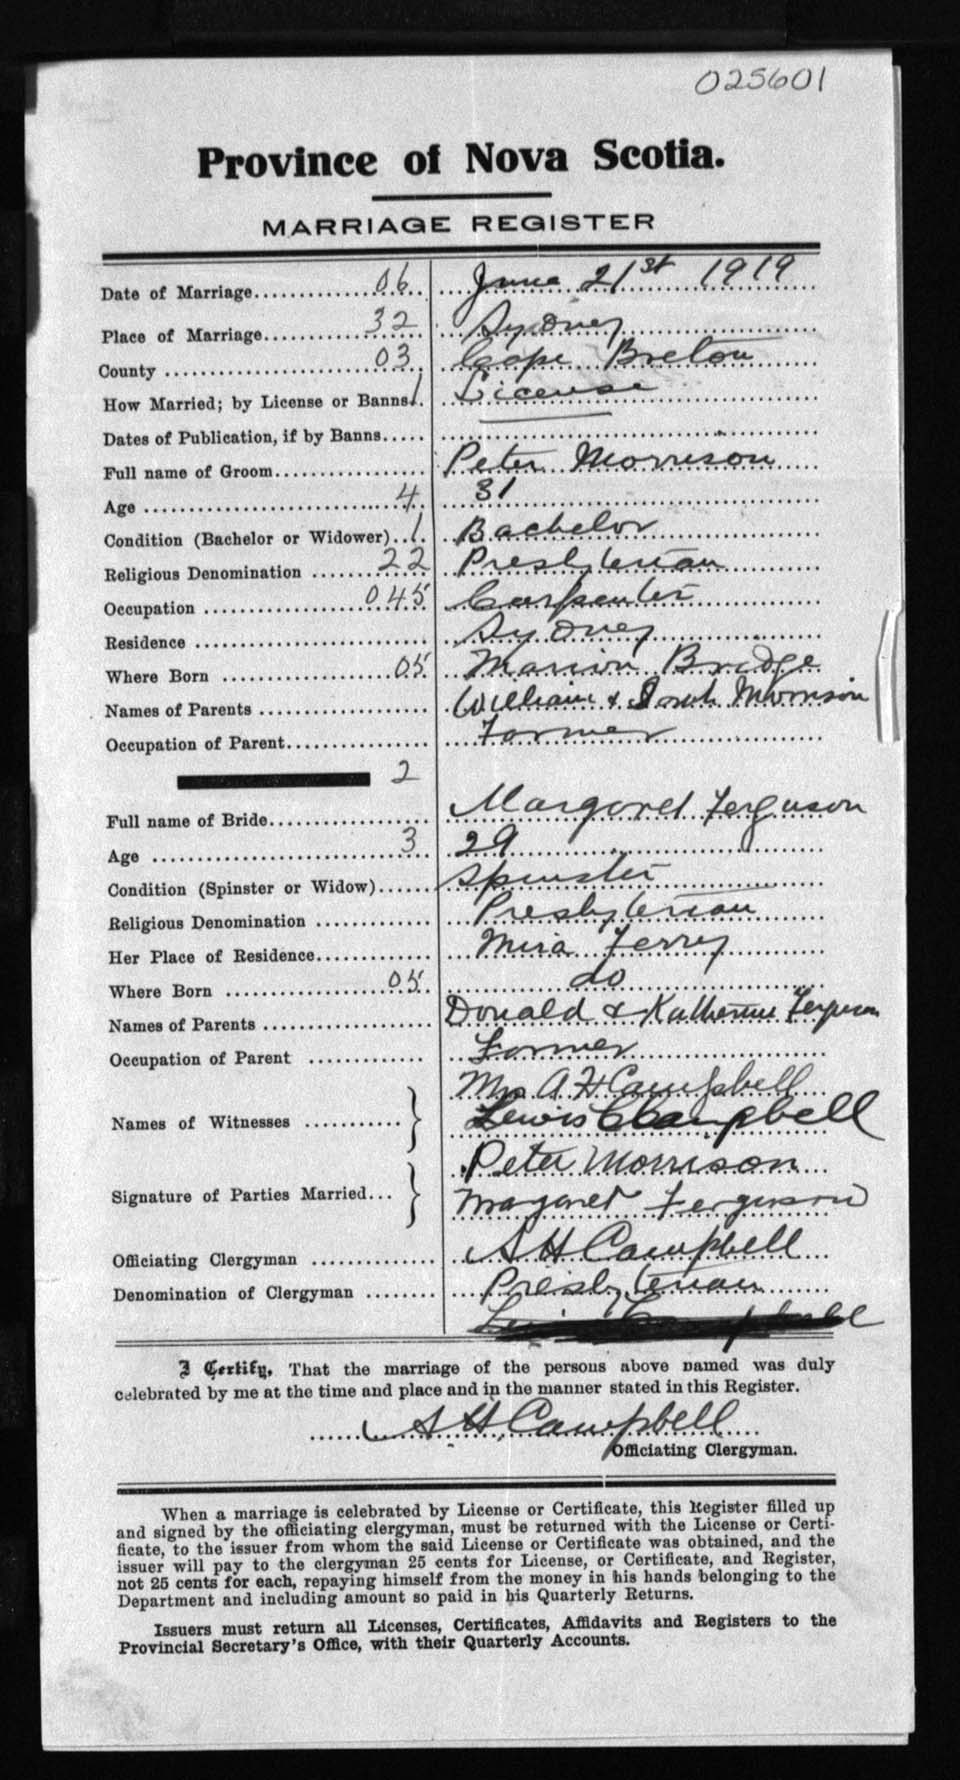 025601
Province of Nova Scotia.
MARRIAGE REGISTER
Date of Marriage 06 June 21st 1919
Place of Marriage 32 Sydney
County 03 Cape Breton
How Married; by License or Banns 1 License
Dates of Publication, if by Banns
Full name of Groom Peter Morrison
Age 4 31
Condition (Bachelor or Widower) 1 Bachelor
Religious Denomination 22 Presbyterian
Occupation 045 Carpenter
Residence Sydney
Where Born 05 Marion Bridge
Names of Parents William & Sarah Morrison
Occupation of Parent Farmer
2
Full name of Bride Margaret Ferguson
Age 3 29
Condition (Spinster or Widow) Spinster
Religious Denomination Presbyterian
Her Place of Residence Mira Ferry
Where Born 05 do
Names of Parents Donald & Katherine Ferguson
Occupation of Parent Farmer
Mrs A H Campbell
Names of Witnesses Lewis C Campbell
Peter Morrison
Signature of Parties Married Margaret Ferguson
Officiating Clergyman A H Campbell
Denomination of Clergyman Presbyterian
I Certify, That the marriage of the persons above named was duly
celebrated by me at the time and place and in the manner stated in this Register.
A H Campbell
Officiating Clergyman.
When a marriage is celebrated by License or Certificate, this Register filled up
and signed by the officiating clergyman, must be returned with the License or Certi-
ficate, to the issuer from whom the said License or Certificate was obtained, and the
issuer will pay to the clergyman 25 cents for License, or Certificate, and Register,
not 25 cents for each, repaying himself from the money in his hands belonging to the
Department and including amount so paid in his Quarterly Returns.
Issuers must return all Licenses, Certificates, Affidavits and Registers to the
Provincial Secretary's Office, with their Quarterly Accounts.